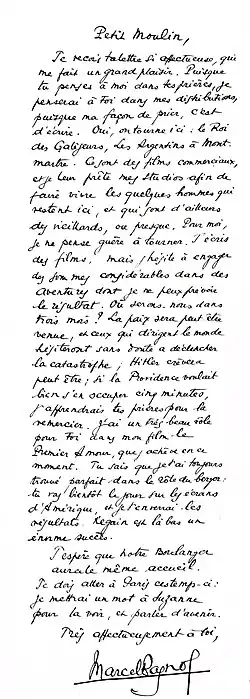 Petit Moulin,
Je reçois ta lettre si affectueuse, qui
me fait un grand plaisir. Puisque
tu penses à moi dans tes prières, je
penserai à Toi dans mes distributions,
puisque ma façon de prier, c'est
d'écrire. Oui, on tourne ici : le Roi
des Galéjeurs, les Argentins à Mont-
martre. Ce sont des films commerciaux,
et je leur prête mes studios afin de
faire vivre les quelques hommes qui
restent ici, et qui sont d'ailleurs
des vieillards, ou presque. Pour moi,
je ne pense guère à tourner. J'écris
des films, mais j'hésite à engager
des sommes considérables dans des
aventures dont je ne peux prévoir
le résultat. Où serons-nous dans
trois mois ? La paix sera peut être
venue, et ceux qui dirigent le monde
hésiteront sans doute à déclencher
la catastrophe ; Hitler crèvera
peut être ; si la Providence voulait
bien s'en occuper cinq minutes,
j'apprendrais tes prières pour la
remercier. J'ai un très beau rôle
pour Toi dans mon film : le
Premier Amour, que j'achève en ce
moment. Tu sais que je t'ai toujours
trouvé parfait dans le rôle du berger :
tu vas bientôt le jouer sur les écrans
d'Amérique, et je t'enverrai les
résultats. Regain est là bas un
énorme succès.
J'espère que notre Boulanger
aura le même accueil.
Je dois aller à Paris ces temps-ci :
je mettrai un mot à Suzanne
pour la voir, et parler d'avenir.
Très affectueusement à toi,
Marcel Pagnol